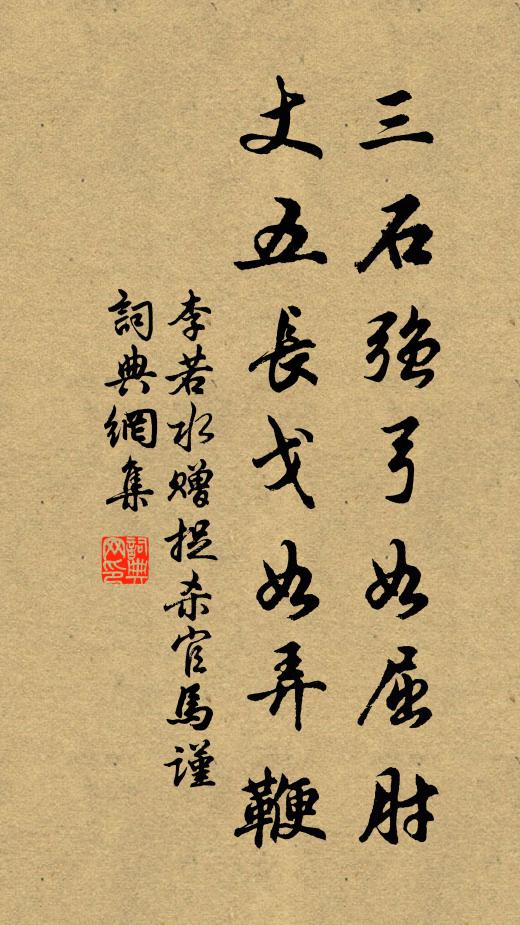 三石強弓如屈肘
丈五長戈如弄鞭
李若水贈捉杀官馬謹
詞典網集
詞典网印